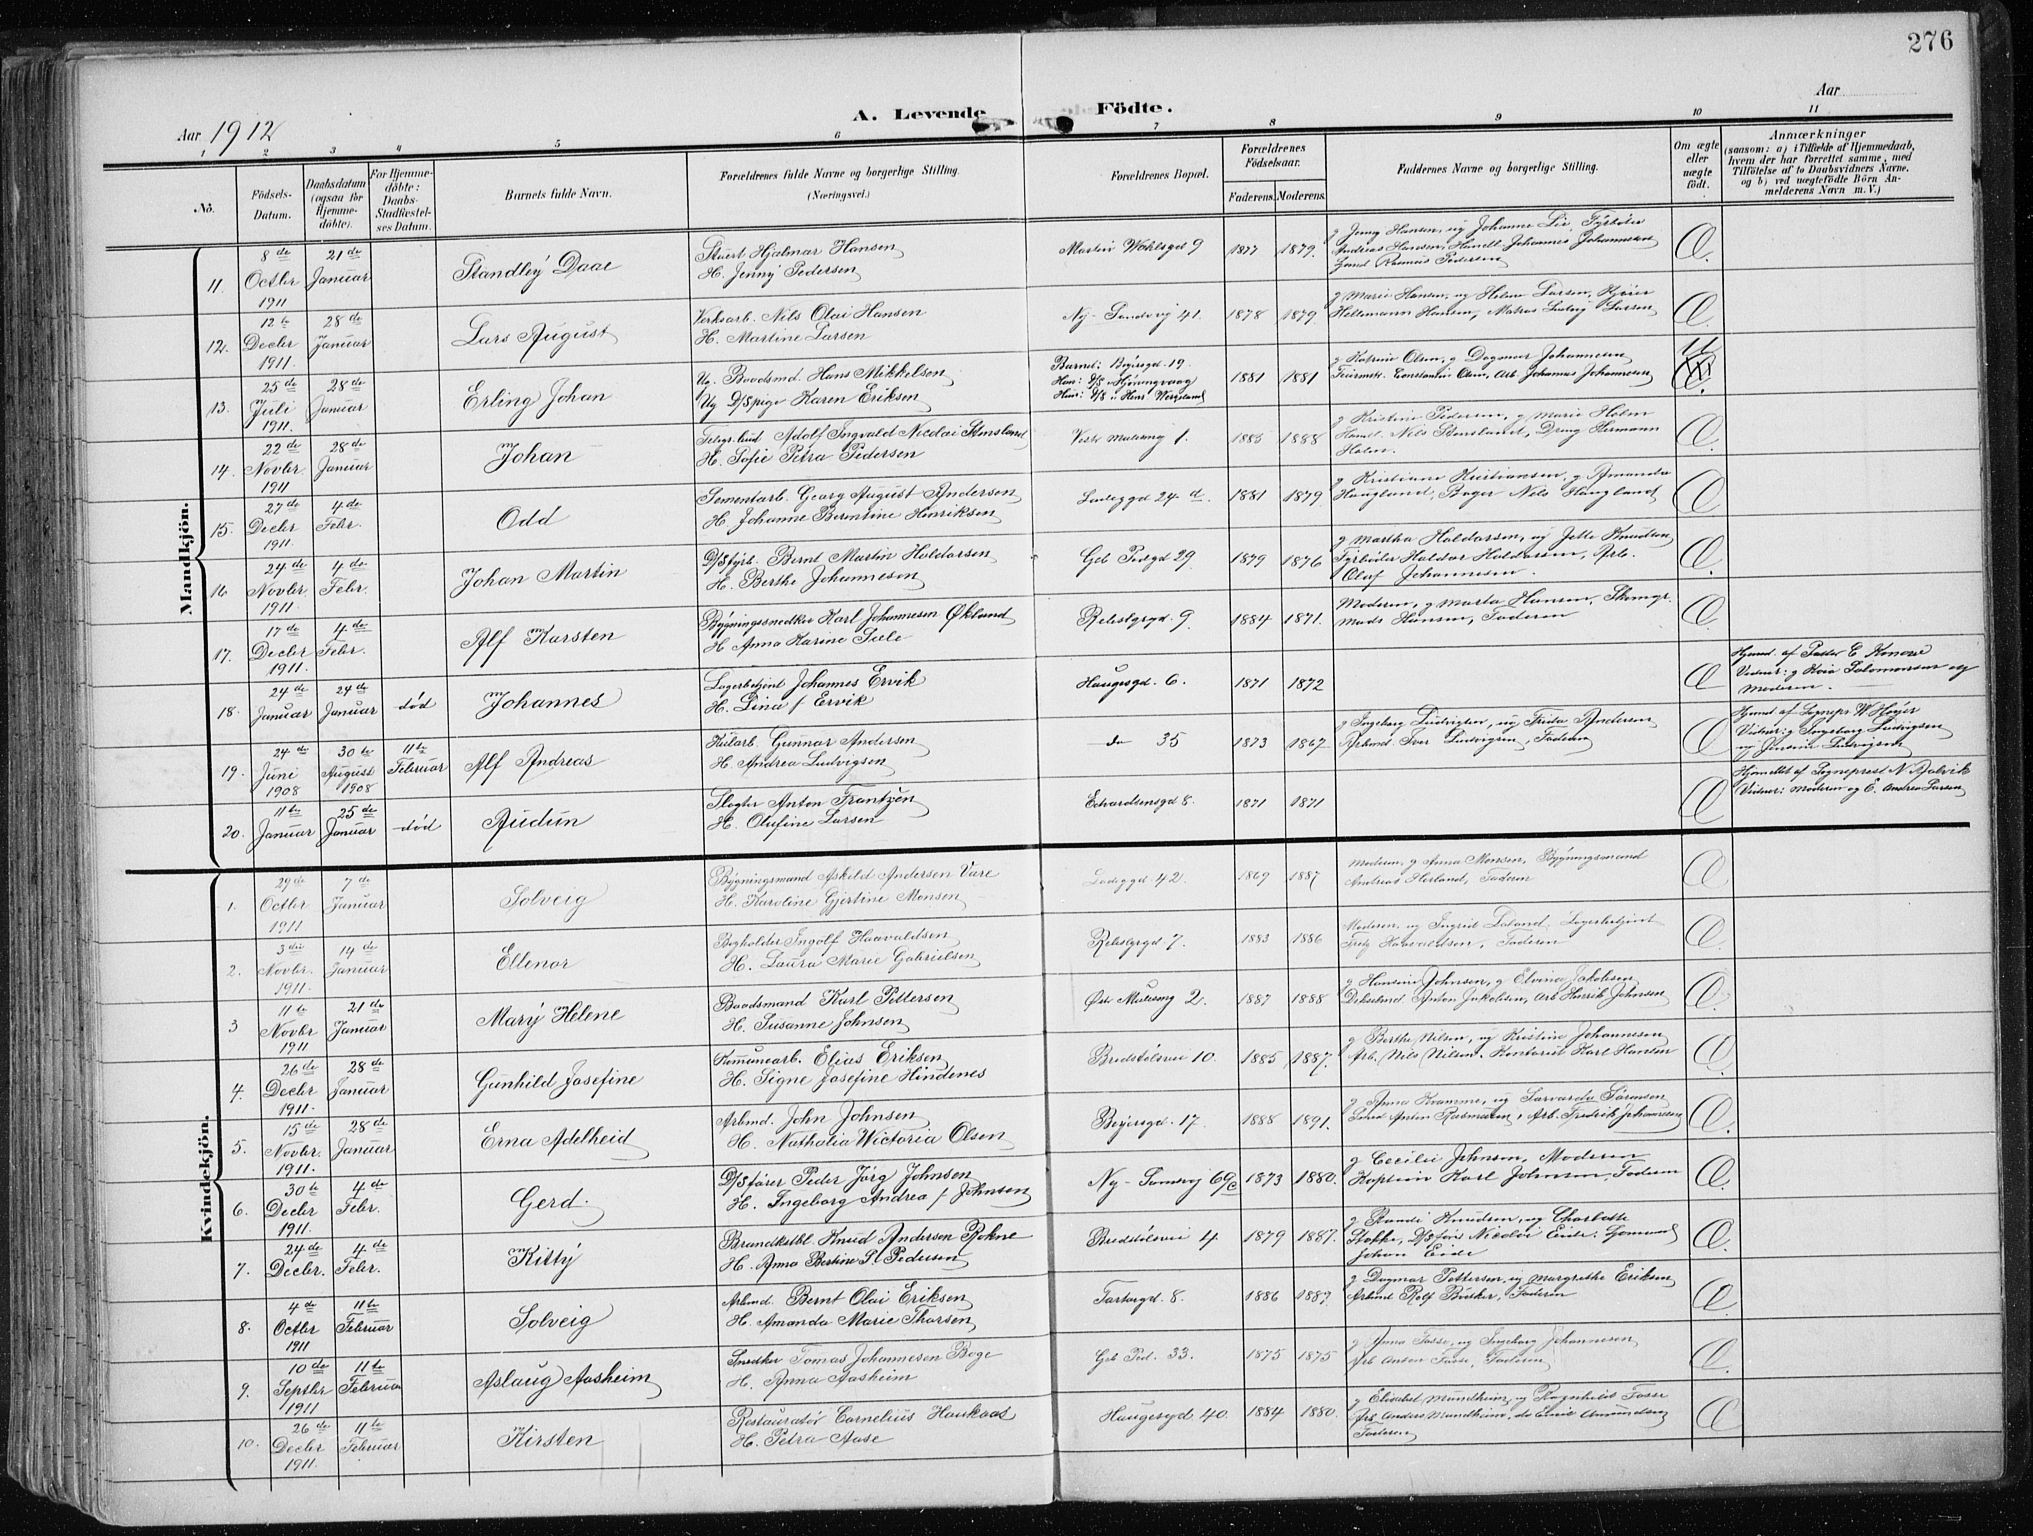 276
A. Levende Födte.
Aar 1912
Aar
1 2 3 4 5 6 7 8 9 10 11
No.
Födsels-Datum.
Daabsdatum (ogsaa for Hjemme-döbte).
For Hjemme-döbte: Daabs-Stadfæstel-ses Datum.
Barnets fulde Navn.
Forældrenes fulde Navne og borgerlige Stilling. (Næringsvei.)
Forældrenes Bopæl.
Forældrenes Födselsaar.
Faderens. Moderens.
Faddernes Navne og borgerlige Stilling.
Om ægte eller uægte födt.
Anmærkninger
(saasom: a) i Tilfælde af Hjemmedaab, hvem der har forrettet samme, med Tilföielse af to Daabsvidners Navne, og b) ved uægtefödte Börn An-melderens Navn m. V.)
Mandkjön.
11. 8de Octbr 1911 21de Januar Standley Daae Stuert Hjalmar Hansen H. Jenny Pedersen Wohlsgd 9 1877 1879. g Jenny Hansen, ug Johanne Lie, Fyrböter Andreas Hansen, Handl. Johannes Johannesen Rasmus Pedersen
12. 12te Decbr 1911. 28de Januar Lars August Verksarb. Nils Olai Hansen H. Martine Larsen Ny-Sandvig 41. 1878 1879. g Marie Hansen, ug Helene Larsen, Hellemann Hansen, Matros Ludvig Larsen
13. 25de Juli 1911. 28de Januar Erling Johan Ug. Baadsmd. Hans Mikkelsen Ug D/Spige Karen Eriksen Barnet: Böiesgd. 19 1881 1881 g Katrine Olsen, g Dagmar Johannesen Constantin Olsen, Arb. Johannes Johannesen
14. 22de Novbr 1911 28de Januar Johan Adolf Ingvald Nicolai Stensland H. Sofie Petra Pedersen 1. 1885 1888 g Kristine Pedersen, g Marie Holm Handl. Nils Stensland, Dreng Hermann Holm.
15. 27de Decbr 1911. 4de Febr. Odd Sementarb. Georg August Andersen H. Johanne Berentine Henriksen Ladeggd 24 d. 1881 1879 g Kristiane Kristiansen, g Amanda Haugland, Bager Nils Haugland
16 24de Novbr 1911 4de Febr. Johan Martin D/Styrb. Bernt Martin Haldorsen H. Berthe Johannesen Geb Pedgd 29 1879 1876 g Martha Haldorsen, ug Jette Knudsen Fyrböder Haldor Haldorsen, Arb. Olaf Johannesen.
17. 17de Decbr 1911. 4de Febr. Alf Karsten Bygningssnedker Karl Johannesen Økland H Anna Karine Sele 9. 1884 1871. Moderen, g Marta Hansen, Mads Hansen, Faderen
18. 24de Januar 24de Januar död Johannes Lagerbetjent Johannes Ervik H. Lina f Ervik Haugesgd. 6. 1871 1872 Hjemd. af Pastor C. Konow Vidner: g Salomonsen og Moderen.
19. 24de Juni 1908 30te August 1908 11te Februar Alf Andreas Gunnar Andersen H. Andrea Ludvigsen do 35 1873 1867 g Ingeborg Ludvigsen, ug Frida Andersen Arbmd. Iver Ludvigsen, Faderen Hjemd. af Sognepr. W Höyer Vidner: g Ingeborg Ludvigsen og Ludvigsen
20. 11te Januar 25de Januar död Audun Slagter Anton Frantzen H. Olufine Larsen Edvardsensgd 8. 1871 1871 Hjemdbt af Sogneprest N. Vidner: Moderen og E. Andrea Larsen
Kvindekjön.
1. 29de Octbr 1911 7de Januar Solveig Bygningsmand Askild Andersen Vare H. Karoline Gjertine Monsen Ladeggd 42. 1869 1887 Moderen, g Anna Monsen, Bygningsmand Andreas Herland, Faderen
2. 3die Novbr. 1911. 14de Januar Ellenor Bogholder Ingolf Haavaldsen H. Laura Marie Gabrielsen 7. 1883 1886 Moderen, ug Ingrid Loland, Lagerbetjent Fritz Haavaldsen, Faderen
3 11te Novbr 1911 21de Januar Mary Helene Baadsmand Karl Pettersen H. Susanne Johnsen 2. 1887 1888 g Hansine Johnsen, g Elvina Jakobsen Anton Jakobsen, Arb Henrik Johnsen
4. 26de Decbr 1911. 28de Januar Gunhild Josefine Komunearb. Elias Eriksen H. Signe Josefine Hindenes Bredstölsvei 10. 1885 1887. g Berthe Nilsen, ug Kristine Johannesen Arb. Nils Nilsen, Kontorist Karl Hansen
5. 15de Novbr. 1911. 28de Januar Erna Adelheid Arbmd. John Johnsen H. Nathalia Wictoria Olsen Böiesgd. 17. 1888 1891. g Anna Kvamme, ug Sörensen Anton Rasmussen, Arb. Fredrik Johannesen
6. 30te Decbr 1911. 4de Febr. Gerd. D/Sförer Peder Jörg Johnsen H. Ingeborg Andrea f Johnsen Ny-Sandvig 69c 1873 1880. g Cecilie Johnsen, Moderen Kaptein Karl Johnsen, Faderen
7. 24de Decbr. 4de Febr. Kitty Brandkstbl. Knud Andersen Rokne H. Anna Bertine S. Pedersen Bredstölsvei 4 1879 1887. g Randi Knudsen, ug Charlotte Stokke, D/Sförer Nicolai Eide, Johan Eide
8. 4de Octbr 1911 11te Februar Solveig Arbmd. Bernt Olai Eriksen H. Amanda Marie Thorsen Tartargd. 8. 1886 1889. g Dagmar Pettersen, ug Margrethe Eriksen Arbmd Rolf Busker, Faderen
9. 10de Septbr 1911 11te Februar Aslaug Aasheim Snedker Tomas Johannesen Boge H. Anna Aasheim Geb Ped. 33. 1875 1875 g Anna Fosse, ug Ingeborg Johannesen Arb Anton Fosse, Faderen
10. 26de Decbr 1911. 11te Februar Kirsten Restauratör Cornelius Haukaas H. Petra Aase Haugesgd 40. 1884 1880. g Elisabet Mundheim, ug Ragnhild Fosse Arb. Anders Mundheim, do Emil Amundsen, Faderen